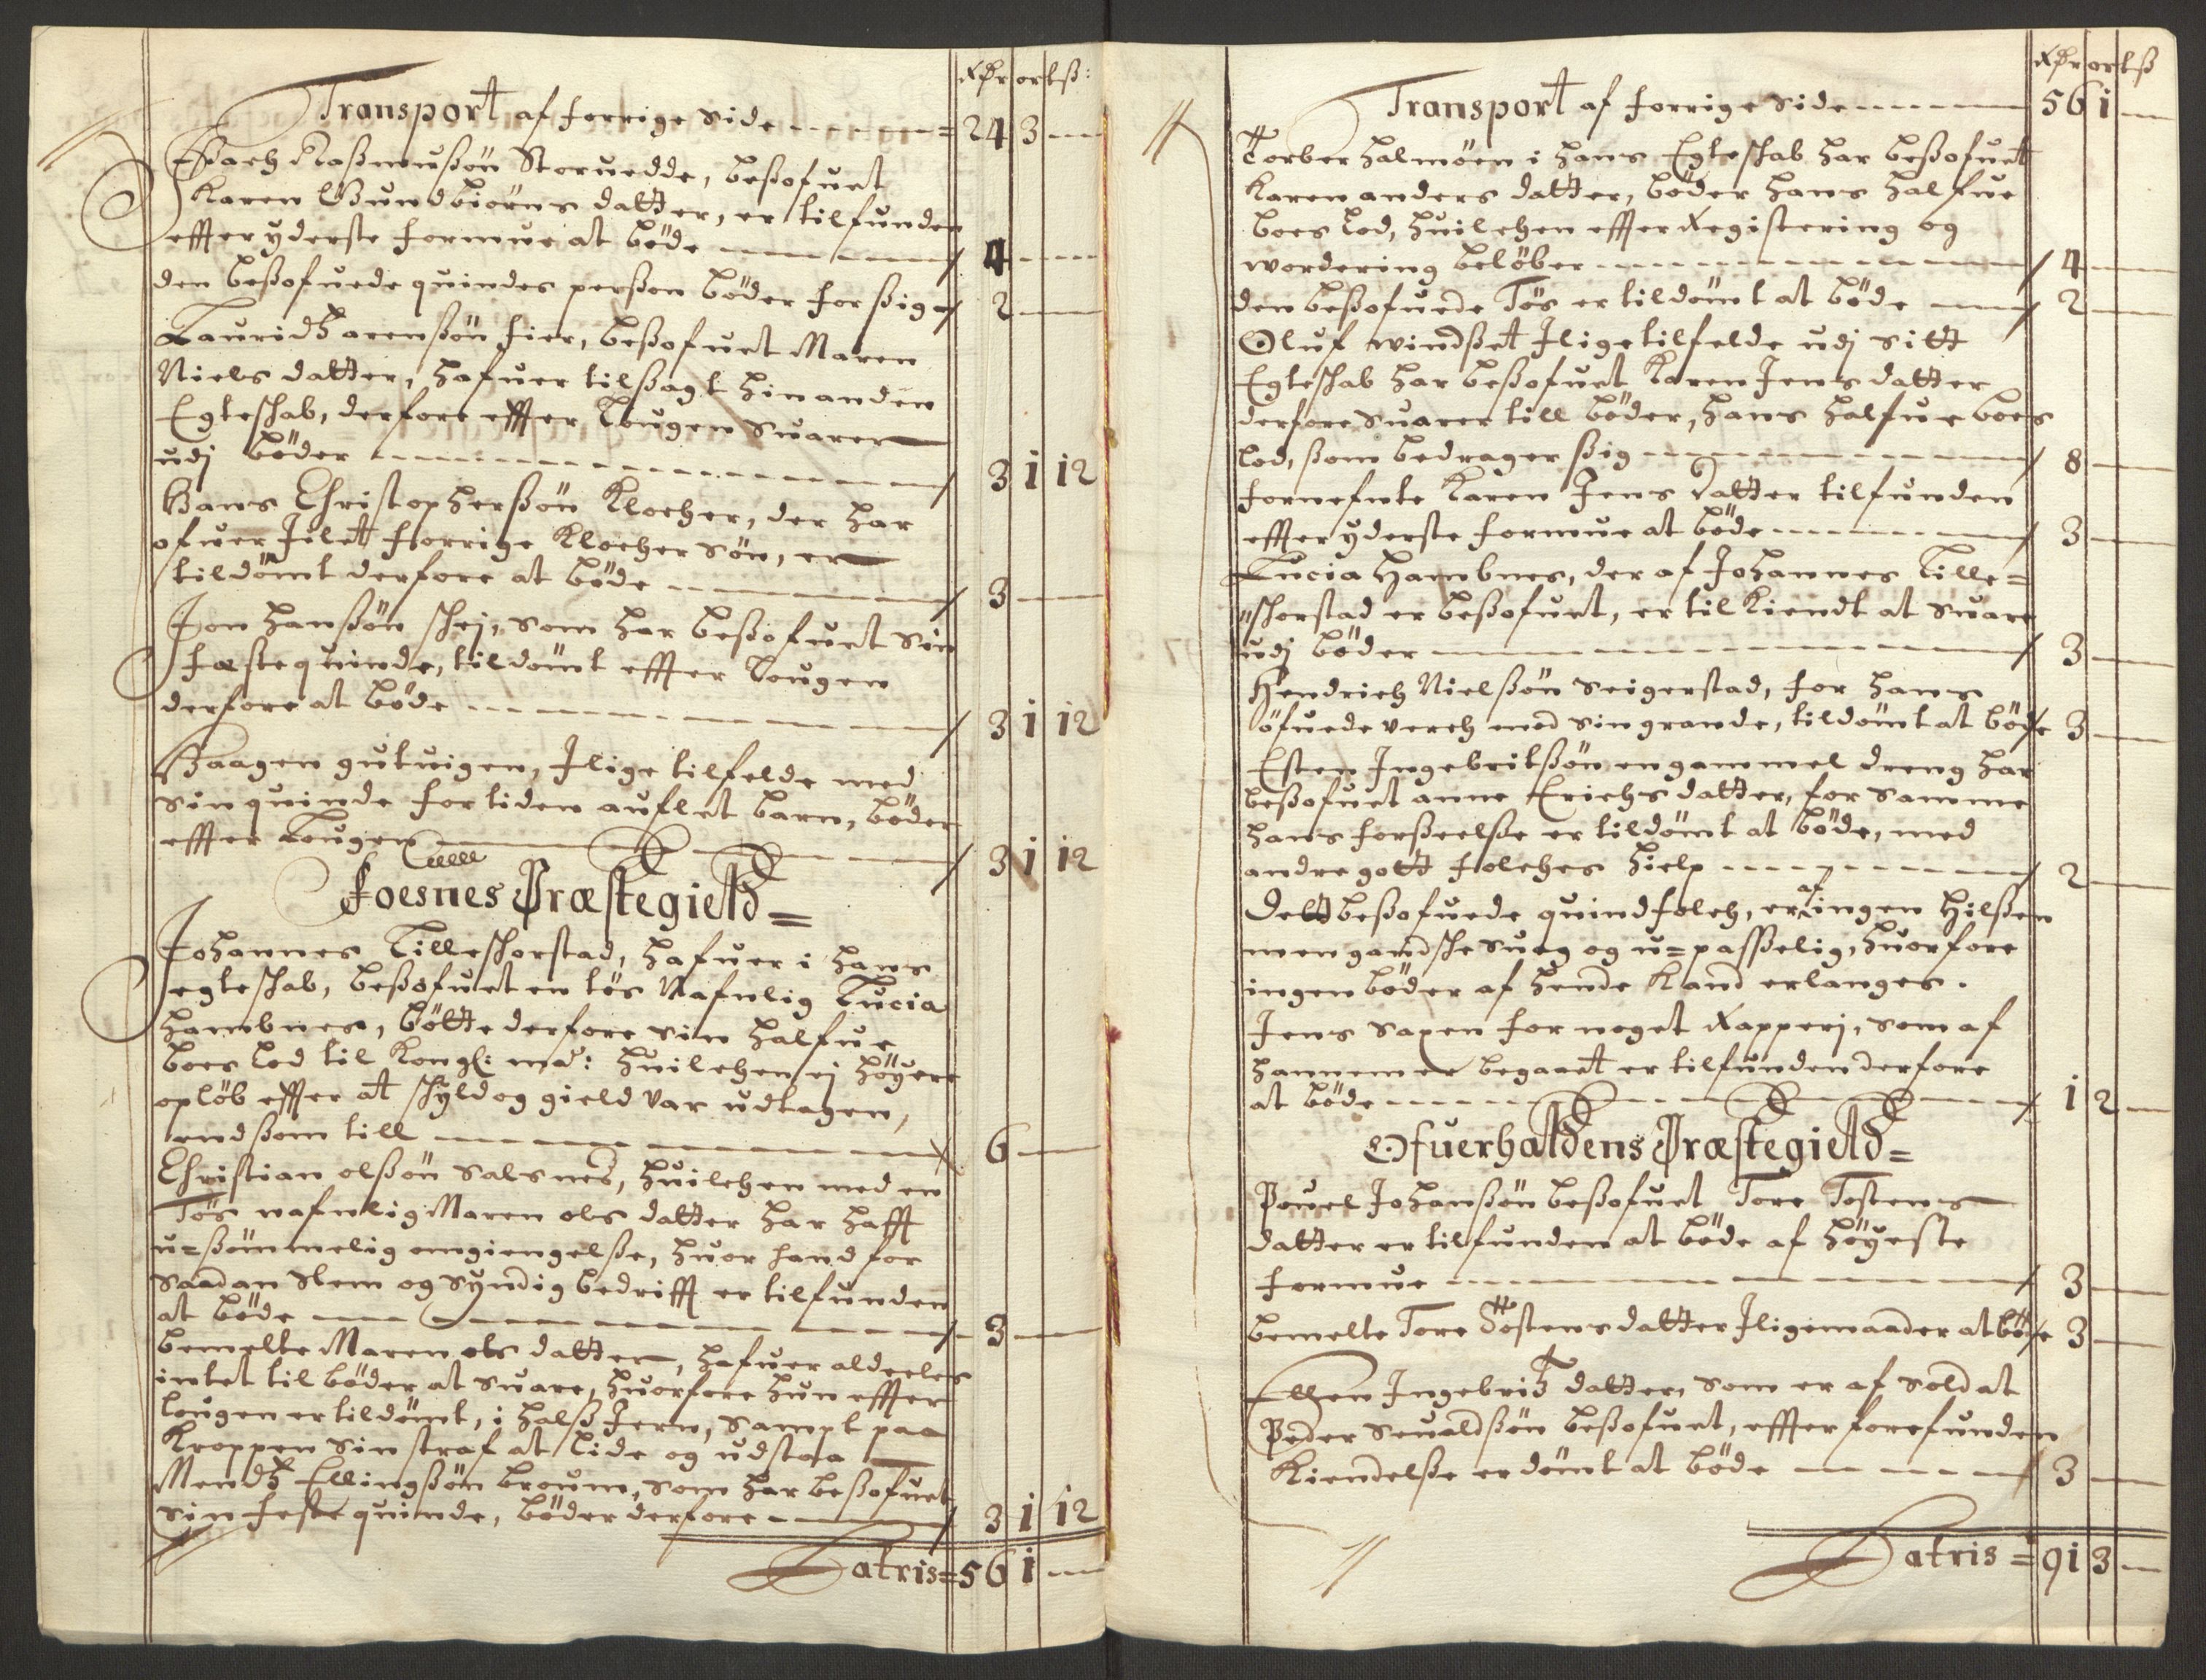 Rdr ort ß:
Transport af forrige side 24 3
Isach Rasmusßøn Storuedde, besofuet
Karen Gundbiørns datter, er tilfunden
effter yderste formue at bøde 4
den besofuede quindes person bøder for sig 2
Lauridz arensøn fier, besofuet Maren
Niels datter, hafuer tilsagt hinanden
Egteskab, derfore effter Lougen suarer
udj bøder 3 1 12
Hans Christophersøn Klocher, der har
ofuer Ilet forrige Klocher søn, er
tildømt derfore at bøde 3
Jon Hansøn skej, som har besofuet Sin
fæste quinde, tildømt effter Lougen
derfore at bøde 3 1 12
Haagen gutuigen, Ilige tilfelde med
sin quinde for tiden auflet barn, bøder
effter Lougen 3 1 12
Foesnes Præstegield
Johannes Lilleskorstad, hafuer i hans
egteskab, besofuet en tøs Nafnlig Lucia
Hambnes, bøtte derfore sin halfue
boes lod til Kongl: may: huilchen ej høyere
opløb effter at skyld og gield var udtagen,
end som till 6
Christian olsøn Salsnes, huilchen med en
Tøs nafnlig Maren ols datter har hafft
u=sømmelig omgiengelse, huor hand for
saadan Slem og syndig bedrifft er tilfunden
at bøde 3
bemelte Maren ols datter, hafuer aldeeles
intet til bøder at suare, huorfore hun effter
lougen er tildømt, i halß Jern, sampt paa
Kroppen sin straf at lide og udstaa
Mendz Ellingsøn broum, som har besofuet
sin feste quinde, bøder derfore 3 1 12
Latris = 56 1
Rdr ort ß
Transport af forrige side 56 1
Torber halmøen i hans Egteskab har besofuet
Karen anders datter, bøder hans halfue
boes lod, huilchen effter Registering og
wordering beløber 4
den besofuede Tøs er tildømt at bøde 2
Oluf windset Ilige tilfelde udj sitt
Egteskab har besofuet Karen Jens datter
derfore suarer till bøder, hans halfue boes
lod, som bedrager sig 8
fornefnte Karen Jens datter tilfunden
effter yderste formue at bøde 3
Lucia Hambnes, der af Johannes Lille=
skorstad er besofuet, er til Kiendt at suare
udj bøder 3
Hendrich Nielsøn seigerstad, for hans
øfuede verch med sin grande, tildømt at bøde 3
Esten Ingebritsøn en gammel dreng har
besofuet anne Erichs datter, for samme
hans forseelse er tildømt at bøde, med
andre gott folches hielp 2
Dett besofuede quindfolch, er af ingen Hilsen
men gandske suag og u=passelig, huorfore
ingen bøder af hende Kand erlanges.
Jens sapen for noget Rapperj, som af
hannem er begaaet er tilfunden derfore
at bøde 1 2
Ofuerhaldens Præstegield
Pouel Johansøn besofuet Tore Tostens
datter er tilfunden at bøde af høyeste
formue 3
bemelte Tore Tostens datter Iligemaader at bøde 3
Ellen Ingebridz datter, som er af soldat
Peder seualdsøn besofuet, effter forefunden
Kiendelse er dømt at bøde 3
Latris = 91 3